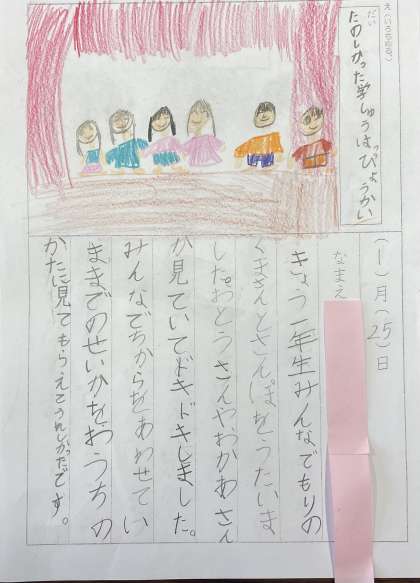 え(いろもぬる。)
だい
たのしかった学しゅうはっぴょうかい
(1)月(25)日
なまえ
きょう一年生みんなでもりの
くまさんとさんぽをうたいま
した。おとうさんやおかあさん
が見ていてドキドキしました。
みんなでちからをあわせてい
ままでのせいかをおうちの
かたに見てもらえてうれしかったです。